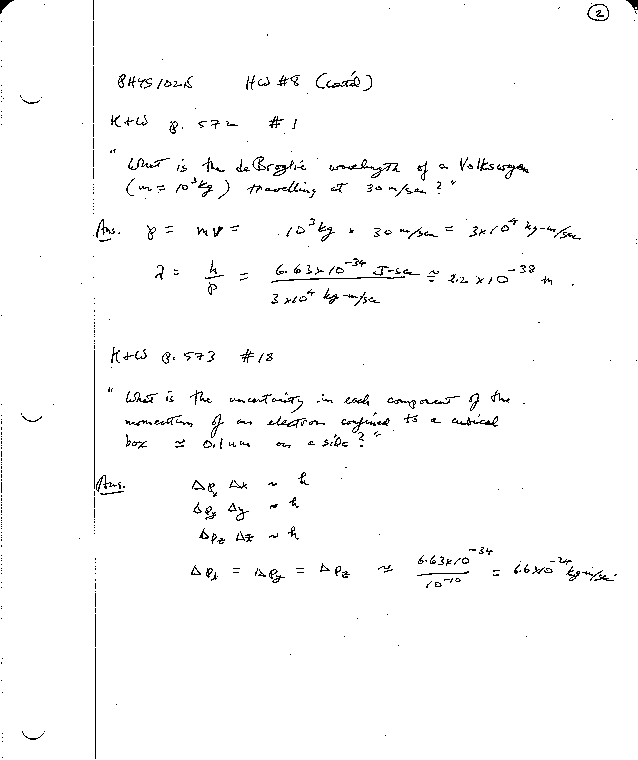 2
PHYS 102B HW #8 (cont'd)
K+W p. 572 #1
"What is the deBroglie wavelength of a Volkswagen
(m = 10³kg) travelling at 30 m/sec?"
Ans. p = mv = 10³kg × 30 m/sec = 3×10⁴ kg-m/sec
λ = h/p = 6.63×10⁻³⁴ J-sec / 3×10⁴ kg-m/sec ≅ 2.2 × 10⁻³⁸ m.
K+W p. 573 #18
"What is the uncertainty in each component of the
momentum of an electron confined to a cubical
box ≈ 0.1 nm on a side?"
Ans. Δpₓ Δx ~ h
Δp_y Δy ~ h
Δp_z Δz ~ h
Δpₓ = Δp_y = Δp_z ≈ 6.63×10⁻³⁴ / 10⁻¹⁰ = 6.6×10⁻²⁴ kg-m/sec